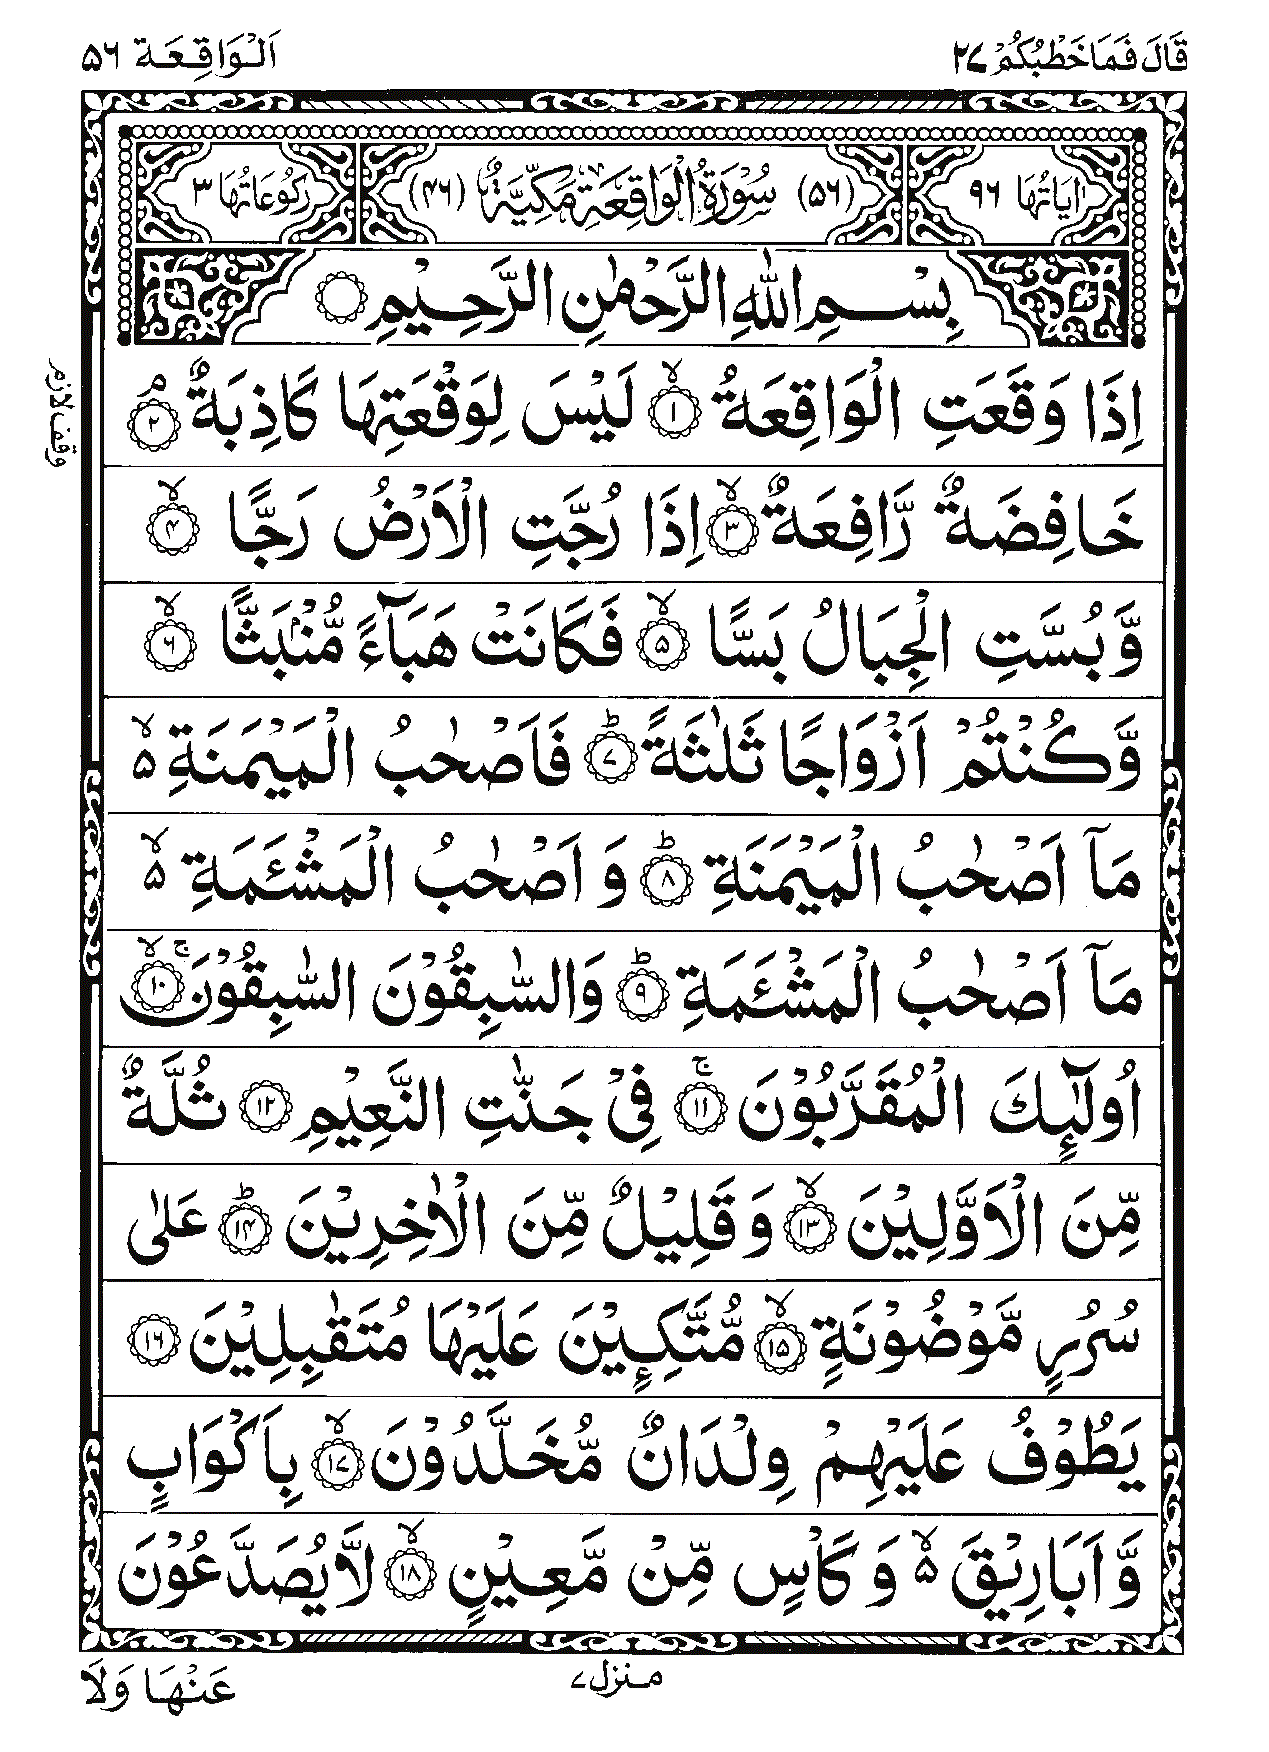 قَالَ فَمَا خَطْبُكُمْ ٢٧
اَلْوَاقِعَة ٥٦
اٰيَاتُهَا ٩٦
(٥٦) سُوْرَةُ الْوَاقِعَةِ مَكِّيَّةٌ (٤٦)
رُكُوْعَاتُهَا ٣
بِسْمِ اللّٰهِ الرَّحْمٰنِ الرَّحِيْمِ ۝
اِذَا وَقَعَتِ الْوَاقِعَةُ ۙ‏ ۝١ لَيْسَ لِوَقْعَتِهَا كَاذِبَةٌ ۘ‏ ۝٢
وقف لازم
خَافِضَةٌ رَّافِعَةٌ ۙ‏ ۝٣ اِذَا رُجَّتِ الْاَرْضُ رَجًّا ۙ‏ ۝٤
وَّ بُسَّتِ الْجِبَالُ بَسًّا ۙ‏ ۝٥ فَكَانَتْ هَبَآءً مُّنْۢبَثًّا ۙ‏ ۝٦
وَّكُنْتُمْ اَزْوَاجًا ثَلٰثَةً ؕ‏ ۝٧ فَاَصْحٰبُ الْمَيْمَنَةِ ۙ۵
مَاۤ اَصْحٰبُ الْمَيْمَنَةِ ؕ‏ ۝٨ وَ اَصْحٰبُ الْمَشْـَٔمَةِ ۙ۵
مَاۤ اَصْحٰبُ الْمَشْـَٔمَةِ ؕ‏ ۝٩ وَالسّٰبِقُوْنَ السّٰبِقُوْنَ ۚۙ‏ ۝١٠
اُولٰٓئِكَ الْمُقَرَّبُوْنَ ۚ‏ ۝١١ فِيْ جَنّٰتِ النَّعِيْمِ ۝١٢ ثُلَّةٌ
مِّنَ الْاَوَّلِيْنَ ۙ‏ ۝١٣ وَ قَلِيْلٌ مِّنَ الْاٰخِرِيْنَ ؕ‏ ۝١٤ عَلٰى
سُرُرٍ مَّوْضُوْنَةٍ ۙ‏ ۝١٥ مُّتَّكِـِٕيْنَ عَلَيْهَا مُتَقٰبِلِيْنَ ۝١٦
يَطُوْفُ عَلَيْهِمْ وِلْدَانٌ مُّخَلَّدُوْنَ ۙ‏ ۝١٧ بِاَكْوَابٍ
وَّ اَبَارِيْقَ ۙ۵ وَ كَاْسٍ مِّنْ مَّعِيْنٍ ۙ‏ ۝١٨ لَّا يُصَدَّعُوْنَ
منزل ٧
عَنْهَا وَلَا